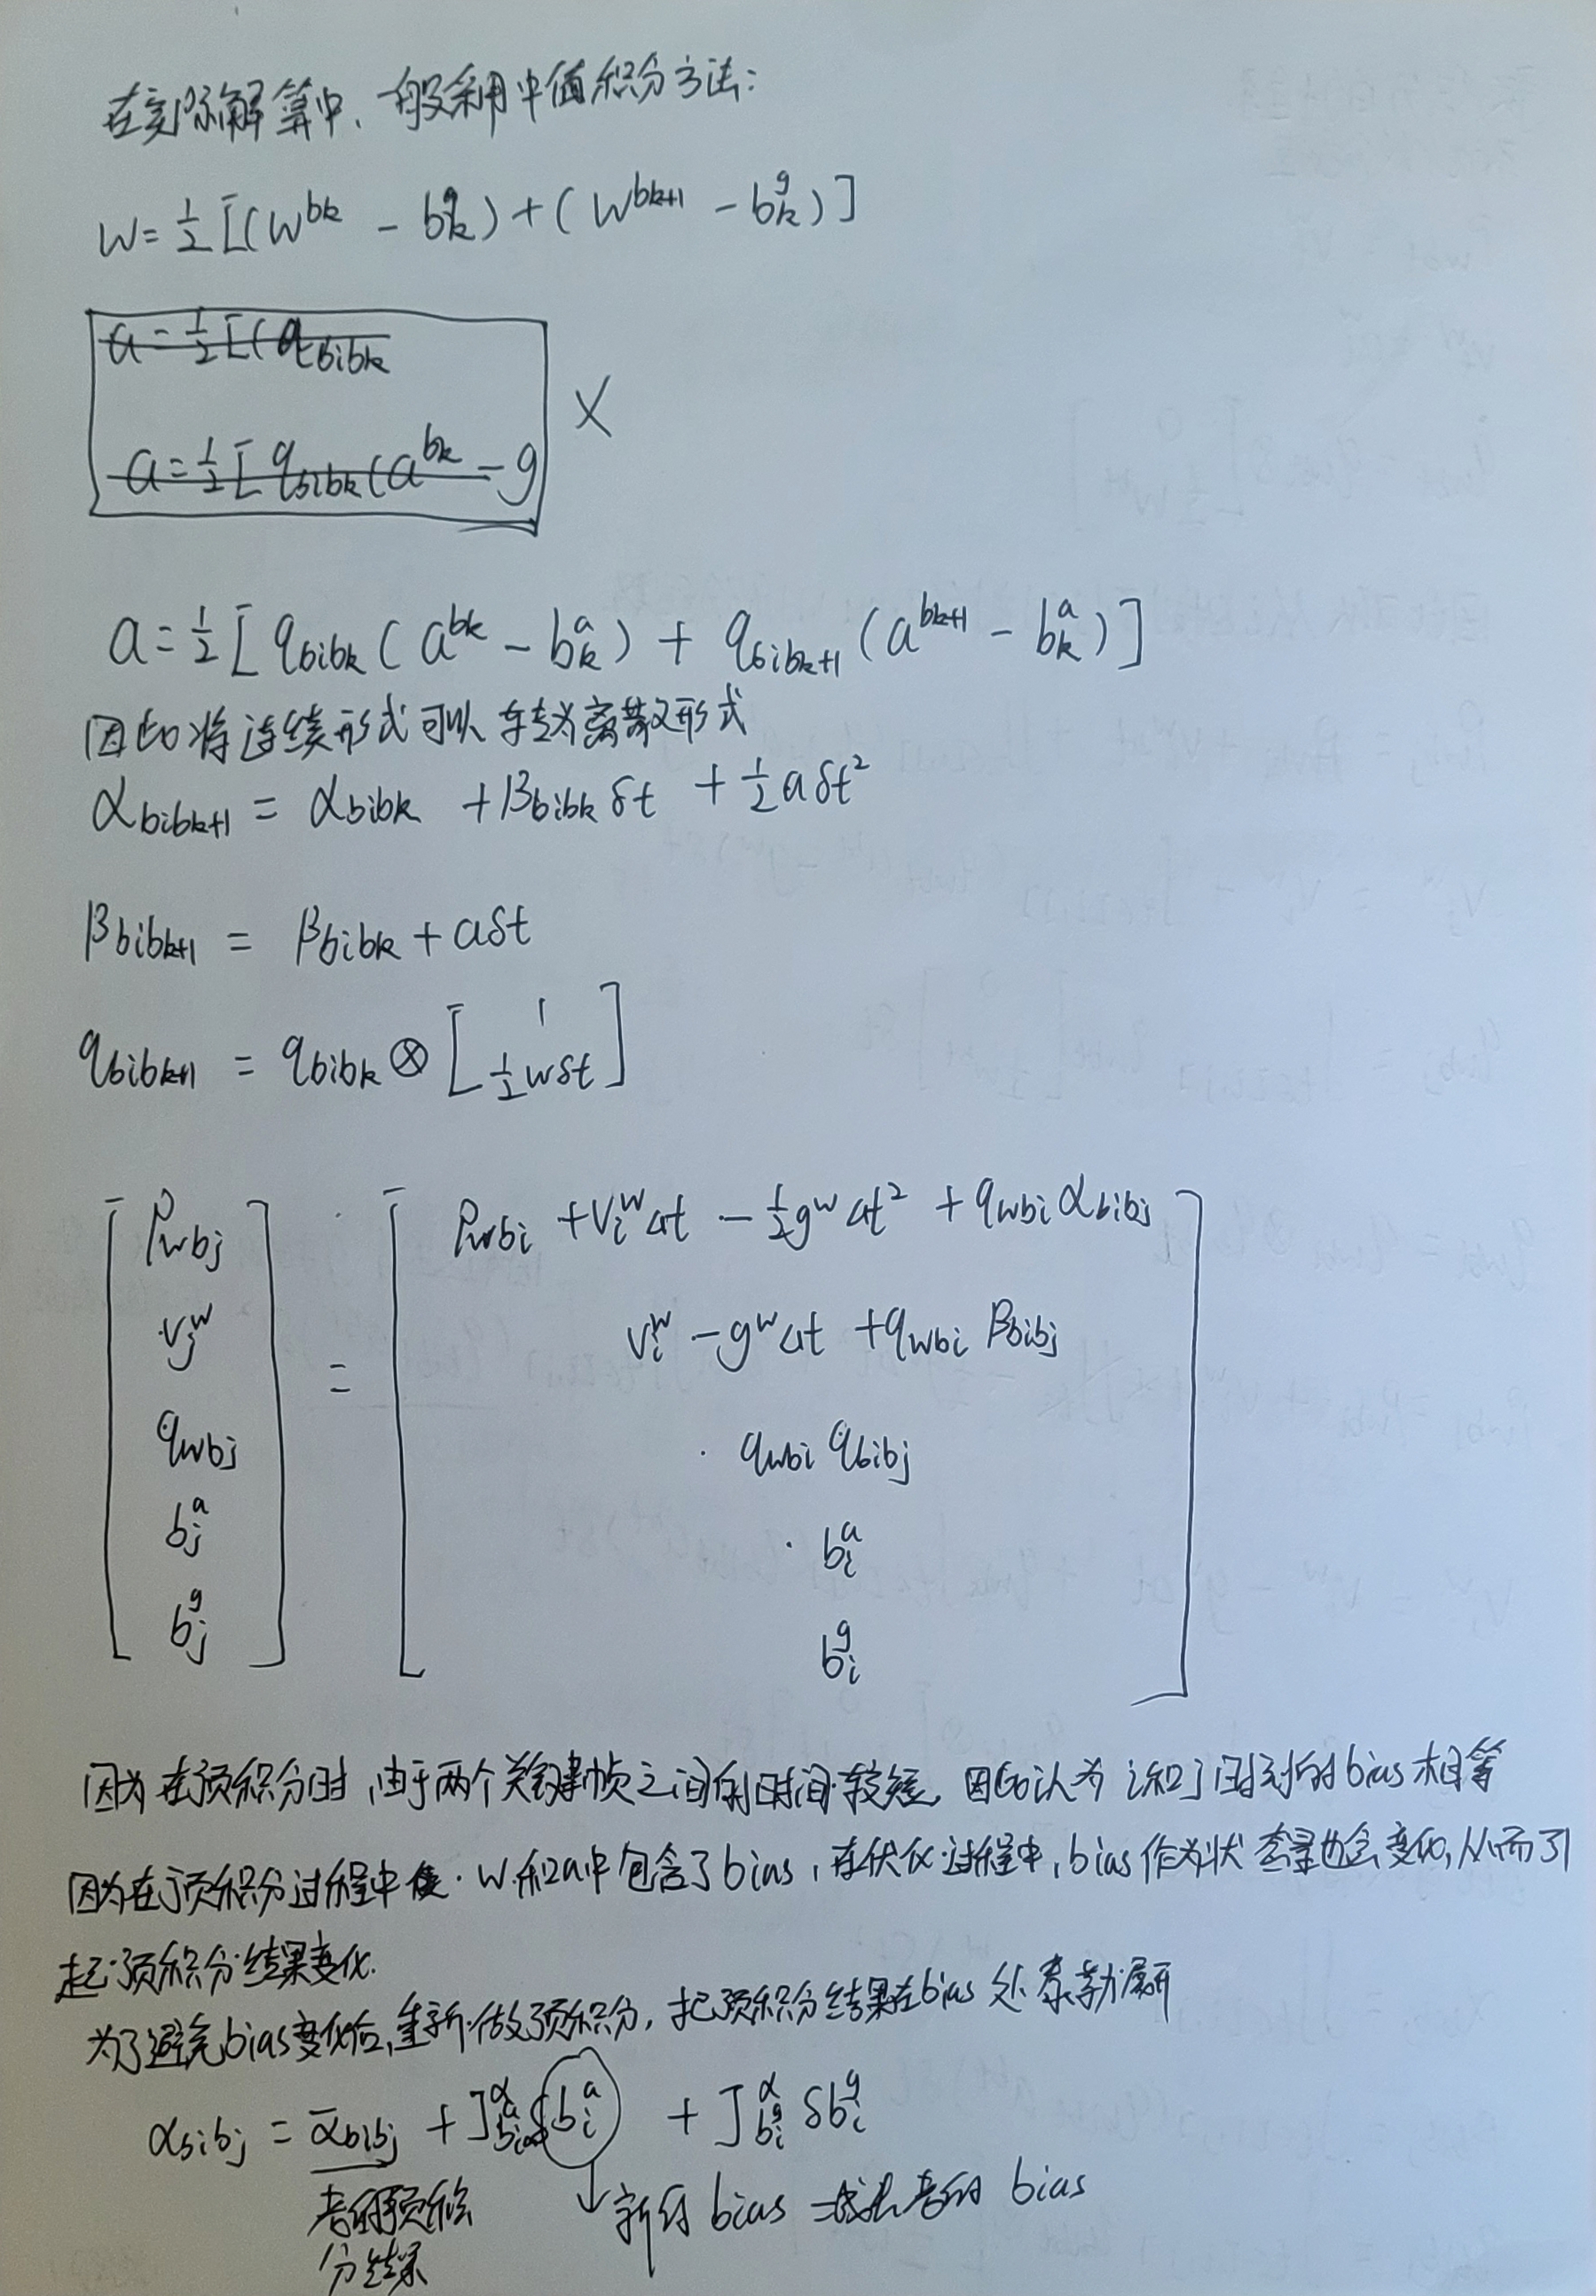 在实际解算中、一般采用中值积分方法:
w = 1/2 [(w^{bk} - b_k^g) + (w^{bk+1} - b_k^g)]
a = 1/2 [(q_{bibk}
a = 1/2 [ q_{bibk} (a^{bk} - g
×
a = 1/2 [ q_{bibk} (a^{bk} - b_k^a) + q_{bibk+1} (a^{bk+1} - b_k^a) ]
因此将连续形式可以转为离散形式
α_{bibk+1} = α_{bibk} + β_{bibk} δt + 1/2 a δt²
β_{bibk+1} = β_{bibk} + a δt
q_{bibk+1} = q_{bibk} ⊗ [ 1 ; 1/2 w δt ]
[ P_{wbj} ; v_j^w ; q_{wbj} ; b_j^a ; b_j^g ] = [ P_{wbi} + v_i^w Δt - 1/2 g^w Δt² + q_{wbi} α_{bibj} ; v_i^w - g^w Δt + q_{wbi} β_{bibj} ; q_{wbi} q_{bibj} ; b_i^a ; b_i^g ]
因为在预积分时,由于两个关键帧之间的时间较短,因此认为i和j时刻的bias相等
因为在预积分过程中 w和a中包含了bias,在优化过程中,bias作为状态量也会变化,从而引
起预积分结果变化.
为了避免bias变化后,重新做预积分,把预积分结果在bias处泰勒展开
α_{bibj} = ᾱ_{bibj} + J^α_{b_i^a} δb_i^a + J^α_{b_i^g} δb_i^g
老的预积
分结果
↓新的bias 减去老的bias